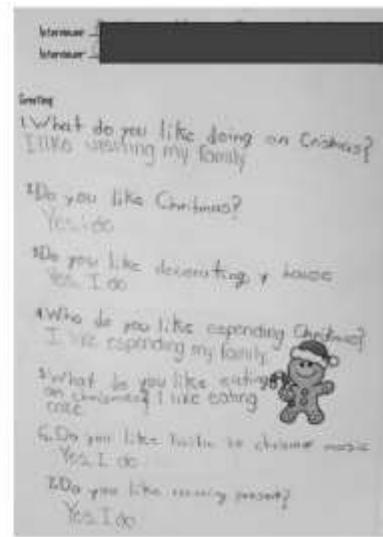 Interviewer
Interviewer
Greeting
1. What do you like doing on Cristmas?
I like visiting my family
2. Do you like Christmas?
Yes, I do
3. Do you like decorating y house
Yes, I do
4. Who do you like espending Christmas?
I like espending my family.
5. What do you like eating
on chrismas? I like eating
cake
6. Do you like to chrismas music
Yes, I do
7. Do you like present?
Yes, I do